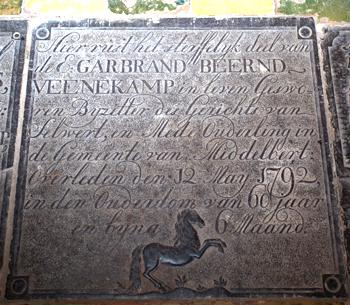 Hier rust het sterffelyk deel van
de E. GARBRAND BEEREND
VEENEKAMP in leven Geswo=
ren Byzitter des Gerichts van
Selwert, en Mede Ouderling in
de Gemeente van Middelbert:
Overleden den 12 May 1792
in den Ouderdom van 60 jaar
en byna 6 Maand: